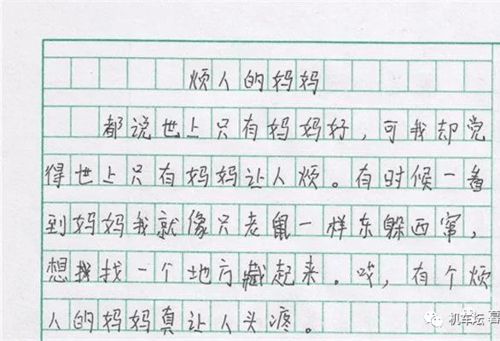 烦人的妈妈
都说世上只有妈妈好，可我却觉
得世上只有妈妈让人烦。有时候一看
到妈妈我就像只老鼠一样东躲西窜，
想找一个地方藏起来。哎，有个烦
人的妈妈真让人头疼。
机车坛